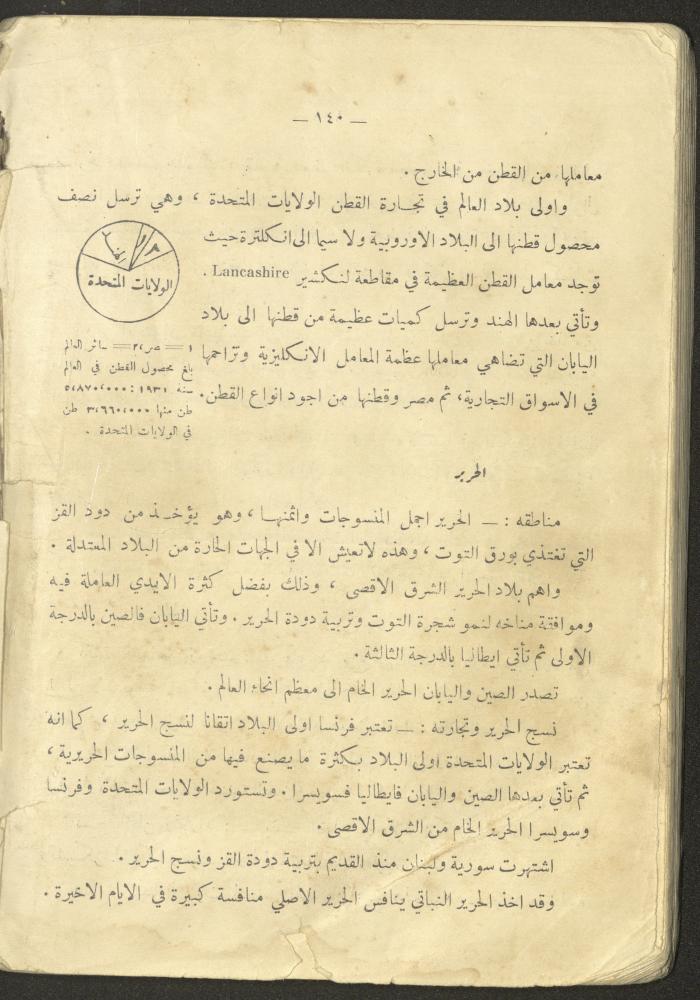 — ١٤٠ —
معاملها من القطن من الخارج .
واولى بلاد العالم في تجارة القطن الولايات المتحدة ، وهي ترسل نصف
محصول قطنها الى البلاد الاوروبية ولا سيما الى انكلترة حيث
توجد معامل القطن العظيمة في مقاطعة لنكشير Lancashire .
وتأتي بعدها الهند وترسل كميات عظيمة من قطنها الى بلاد
اليابان التي تضاهي معاملها عظمة المعامل الانكليزية وتزاحمها
في الاسواق التجارية، ثم مصر وقطنها من اجود انواع القطن.
الهند
الولايات المتحدة
١ = مصر ٢، = سائر العالم
بلغ محصول القطن في العالم
سنه ١٩٣١ : ٥،٨٧٠،٠٠٠
طن منها ٣،٦٦٠،٠٠٠ طن
في الولايات المتحدة .
الحرير
مناطقه : — الحرير اجمل المنسوجات واثمنها ، وهو يؤخذ من دود القز
التي تغتذي بورق التوت ، وهذه لاتعيش الا في الجهات الحارة من البلاد المعتدلة .
واهم بلاد الحرير الشرق الاقصى ، وذلك بفضل كثرة الايدي العاملة فيه
وموافقة مناخه لنمو شجرة التوت وتربية دودة الحرير . وتأتي اليابان فالصين بالدرجة
الاولى ثم تأتي ايطاليا بالدرجة الثالثة .
تصدر الصين واليابان الحرير الخام الى معظم انحاء العالم .
نسج الحرير وتجارته : — تعتبر فرنسا اولى البلاد اتقانا لنسج الحرير ، كما انه
تعتبر الولايات المتحدة اولى البلاد بكثرة ما يصنع فيها من المنسوجات الحريرية ،
ثم تأتي بعدها الصين واليابان فايطاليا فسويسرا . وتستورد الولايات المتحدة وفرنسا
وسويسرا الحرير الخام من الشرق الاقصى .
اشتهرت سورية ولبنان منذ القديم بتربية دودة القز ونسج الحرير .
وقد اخذ الحرير النباتي ينافس الحرير الاصلي منافسة كبيرة في الايام الاخيرة .